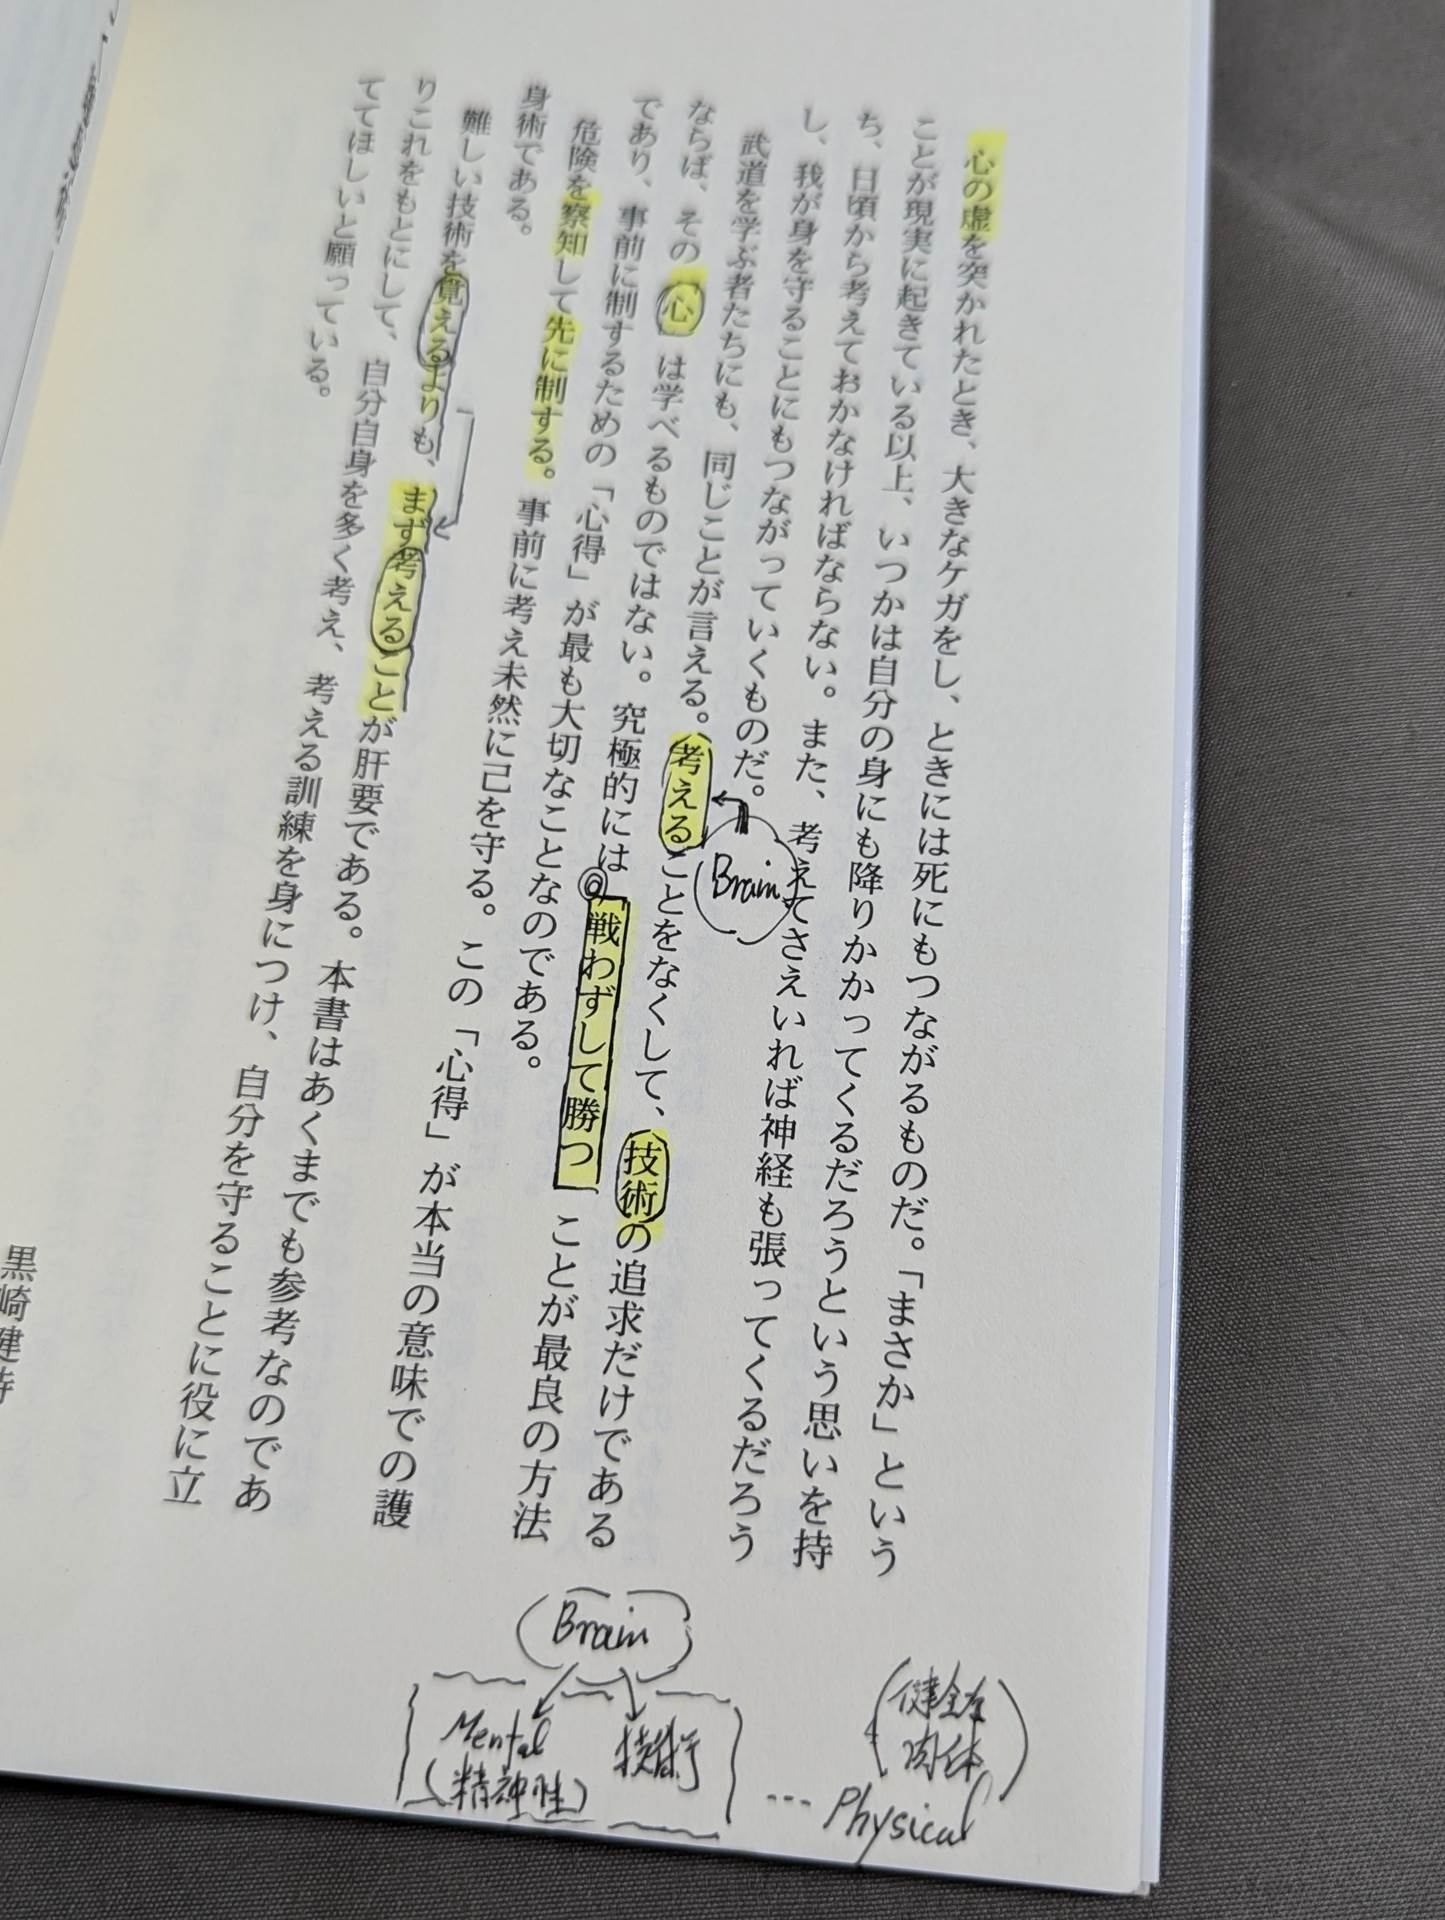 心の虚を突かれたとき、大きなケガをし、ときには死にもつながるものだ。「まさか」という
ことが現実に起きている以上、いつかは自分の身にも降りかかってくるだろうという思いを持
ち、日頃から考えておかなければならない。また、考えてさえいれば神経も張ってくるだろう
し、我が身を守ることにもつながっていくものだ。
武道を学ぶ者たちにも、同じことが言える。考えることをなくして、技術の追求だけである
ならば、その「心」は学べるものではない。究極的には戦わずして勝つことが最良の方法
であり、事前に制するための「心得」が最も大切なことなのである。
危険を察知して先に制する。事前に考え未然に己を守る。この「心得」が本当の意味での護
身術である。
難しい技術を覚えるよりも、まず考えることが肝要である。本書はあくまでも参考なのであ
りこれをもとにして、自分自身を多く考え、考える訓練を身につけ、自分を守ることに役に立
ててほしいと願っている。
黒崎健時
Brain
Brain
Mental
(精神性)
技術
健全な
肉体
... Physical